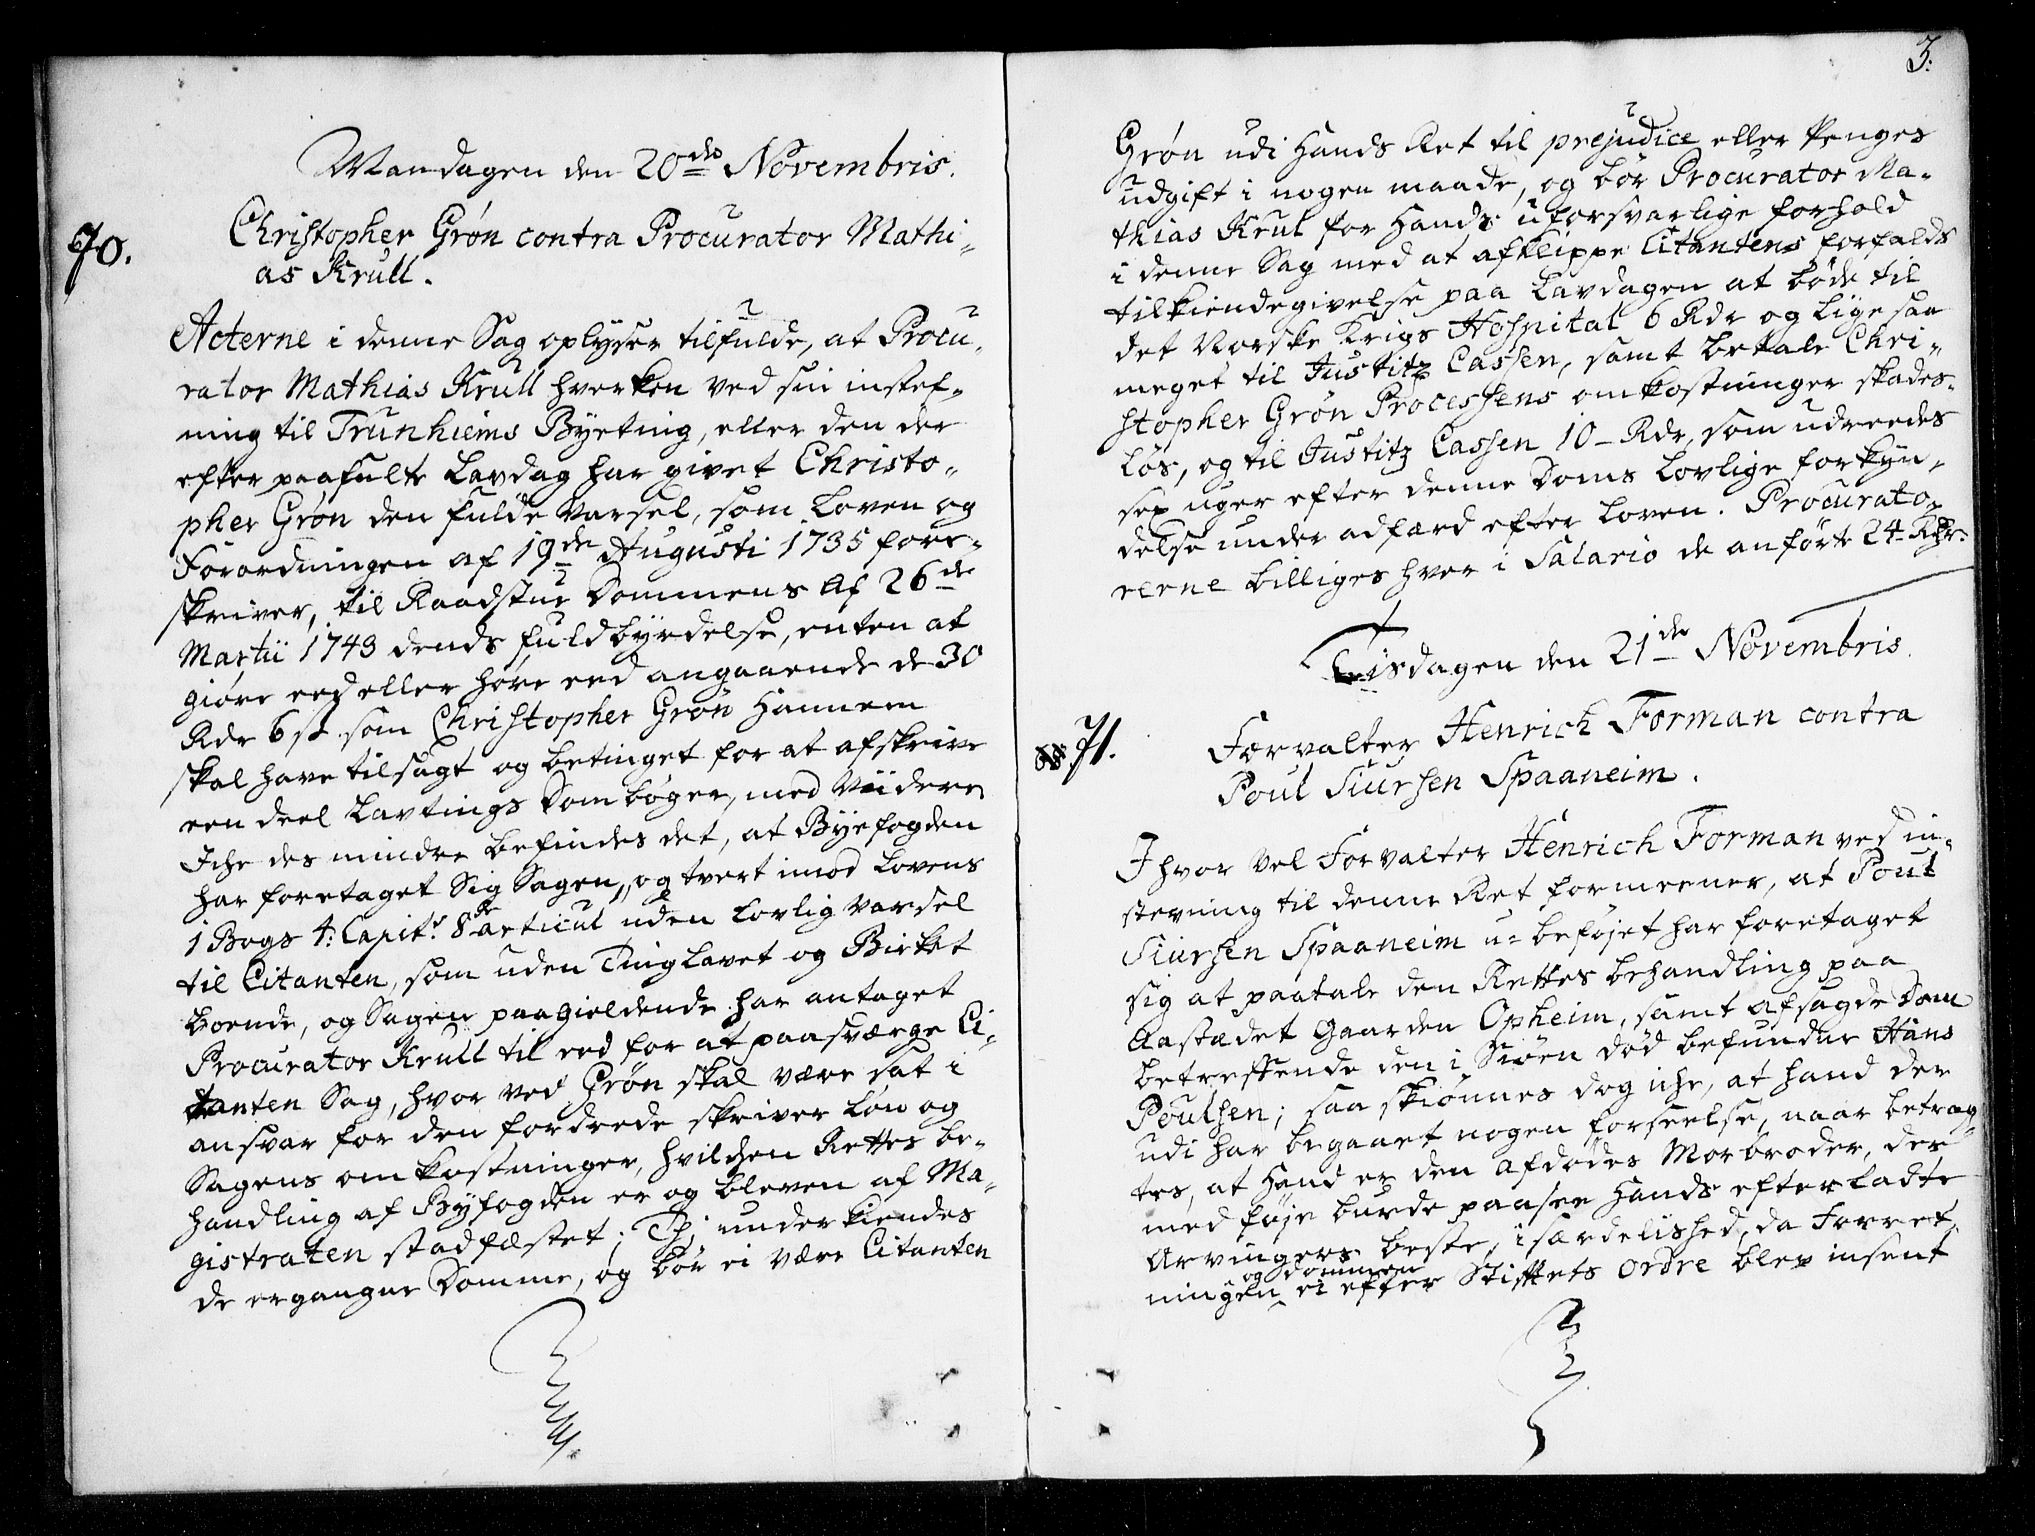 Mandagen den 20de Novembris.
70.
Christopher Grøn contra Procurator Mathi-
as Krull.
Acterne i denne Sag oplyser tilfulde, at Procu-
rator Mathias Krull hverken ved sin instef-
ning til Trunhiems Byeting, eller den der
efter paafulte Lavdag har givet Christo-
pher Grøn den fulde Varsel, som Loven og
Forordningen af 19de Augusti 1735 fore-
skriver, til Raadstue Dommens af 26de
Martii 1743 dends fuldbyrdelse, enten at
giøre eed eller høre eed angaaende de 30
Rdr 6 s. som Christopher Grøn Hannem
skal have tilsagt og betinget for at afskrive
een deel Lavtings Dombøger, med Viidere
Iche des mindre befindes det, at Byefogden
har foretaget Sig Sagen, og tvert imod Lovens
1 Bogs 4: Capit: 8de articul uden Lovlig Varsel
til Citanten, som uden Tinglavet og Birket
boende, og Sagen paagieldende har antaget
Procurator Krull til eed for at paasværge Ci-
tanten Sag, hvor ved Grøn skal være sat i
ansvar for den fordrede skriver Løn og
Sagens omkostninger, hvilchen Rettes be-
handling af Byfogden er og bleven af Ma-
gistraten stadfæstet; Thj underkiendes
de ergangne Domme, og bør ei være Citanten
3:
Grøn udi Hands Ret til prejudice eller Penges
udgift i nogen maade, og bør Procurator Ma-
thias Krul for Hands uforsvarlige forhold
i denne Sag med at afklippe Citantens forfalds
tilkiendegivelse paa Lavdagen at bøde til
det Norske Krigs Hospital 6 Rdr og lige saa
meget til Justitz Cassen, samt betale Chri-
stopher Grøn Processens omkostninger skades-
løs, og til Justitz Cassen 10 - Rdr, som udreedes
sex uger efter denne Doms Lovlige forkyn-
delse under adfærd efter Loven. Procurato-
rerne billiges hver i Salario de anførte 24 Rdr.
Tisdagen den 21de Novembris.
71.
Forvalter Henrich Forman contra
Poul Siursen Spaaneim.
Ihvor vel Forvalter Henrich Forman ved in-
stevning til denne Ret formeener, at Poul
Siursen Spaaneim u-beføjet har foretaget
sig at paatale den Rettes behandling paa
Aastædet Gaarden Opheim, samt afsagde Dom
betreffende den i Siøen død befundne Hans
Poulsen; saa skiønnes dog iche, at hand der
udi har begaaet nogen forseelse, naar betrag-
tes, at Hand er den afdødes Morbroder, der
med føje burde paasee Hands efterladte
Arvingers beste, i særdelished, da Forret-
og Dommen
ningen ei efter Stiftets Ordre blev insent